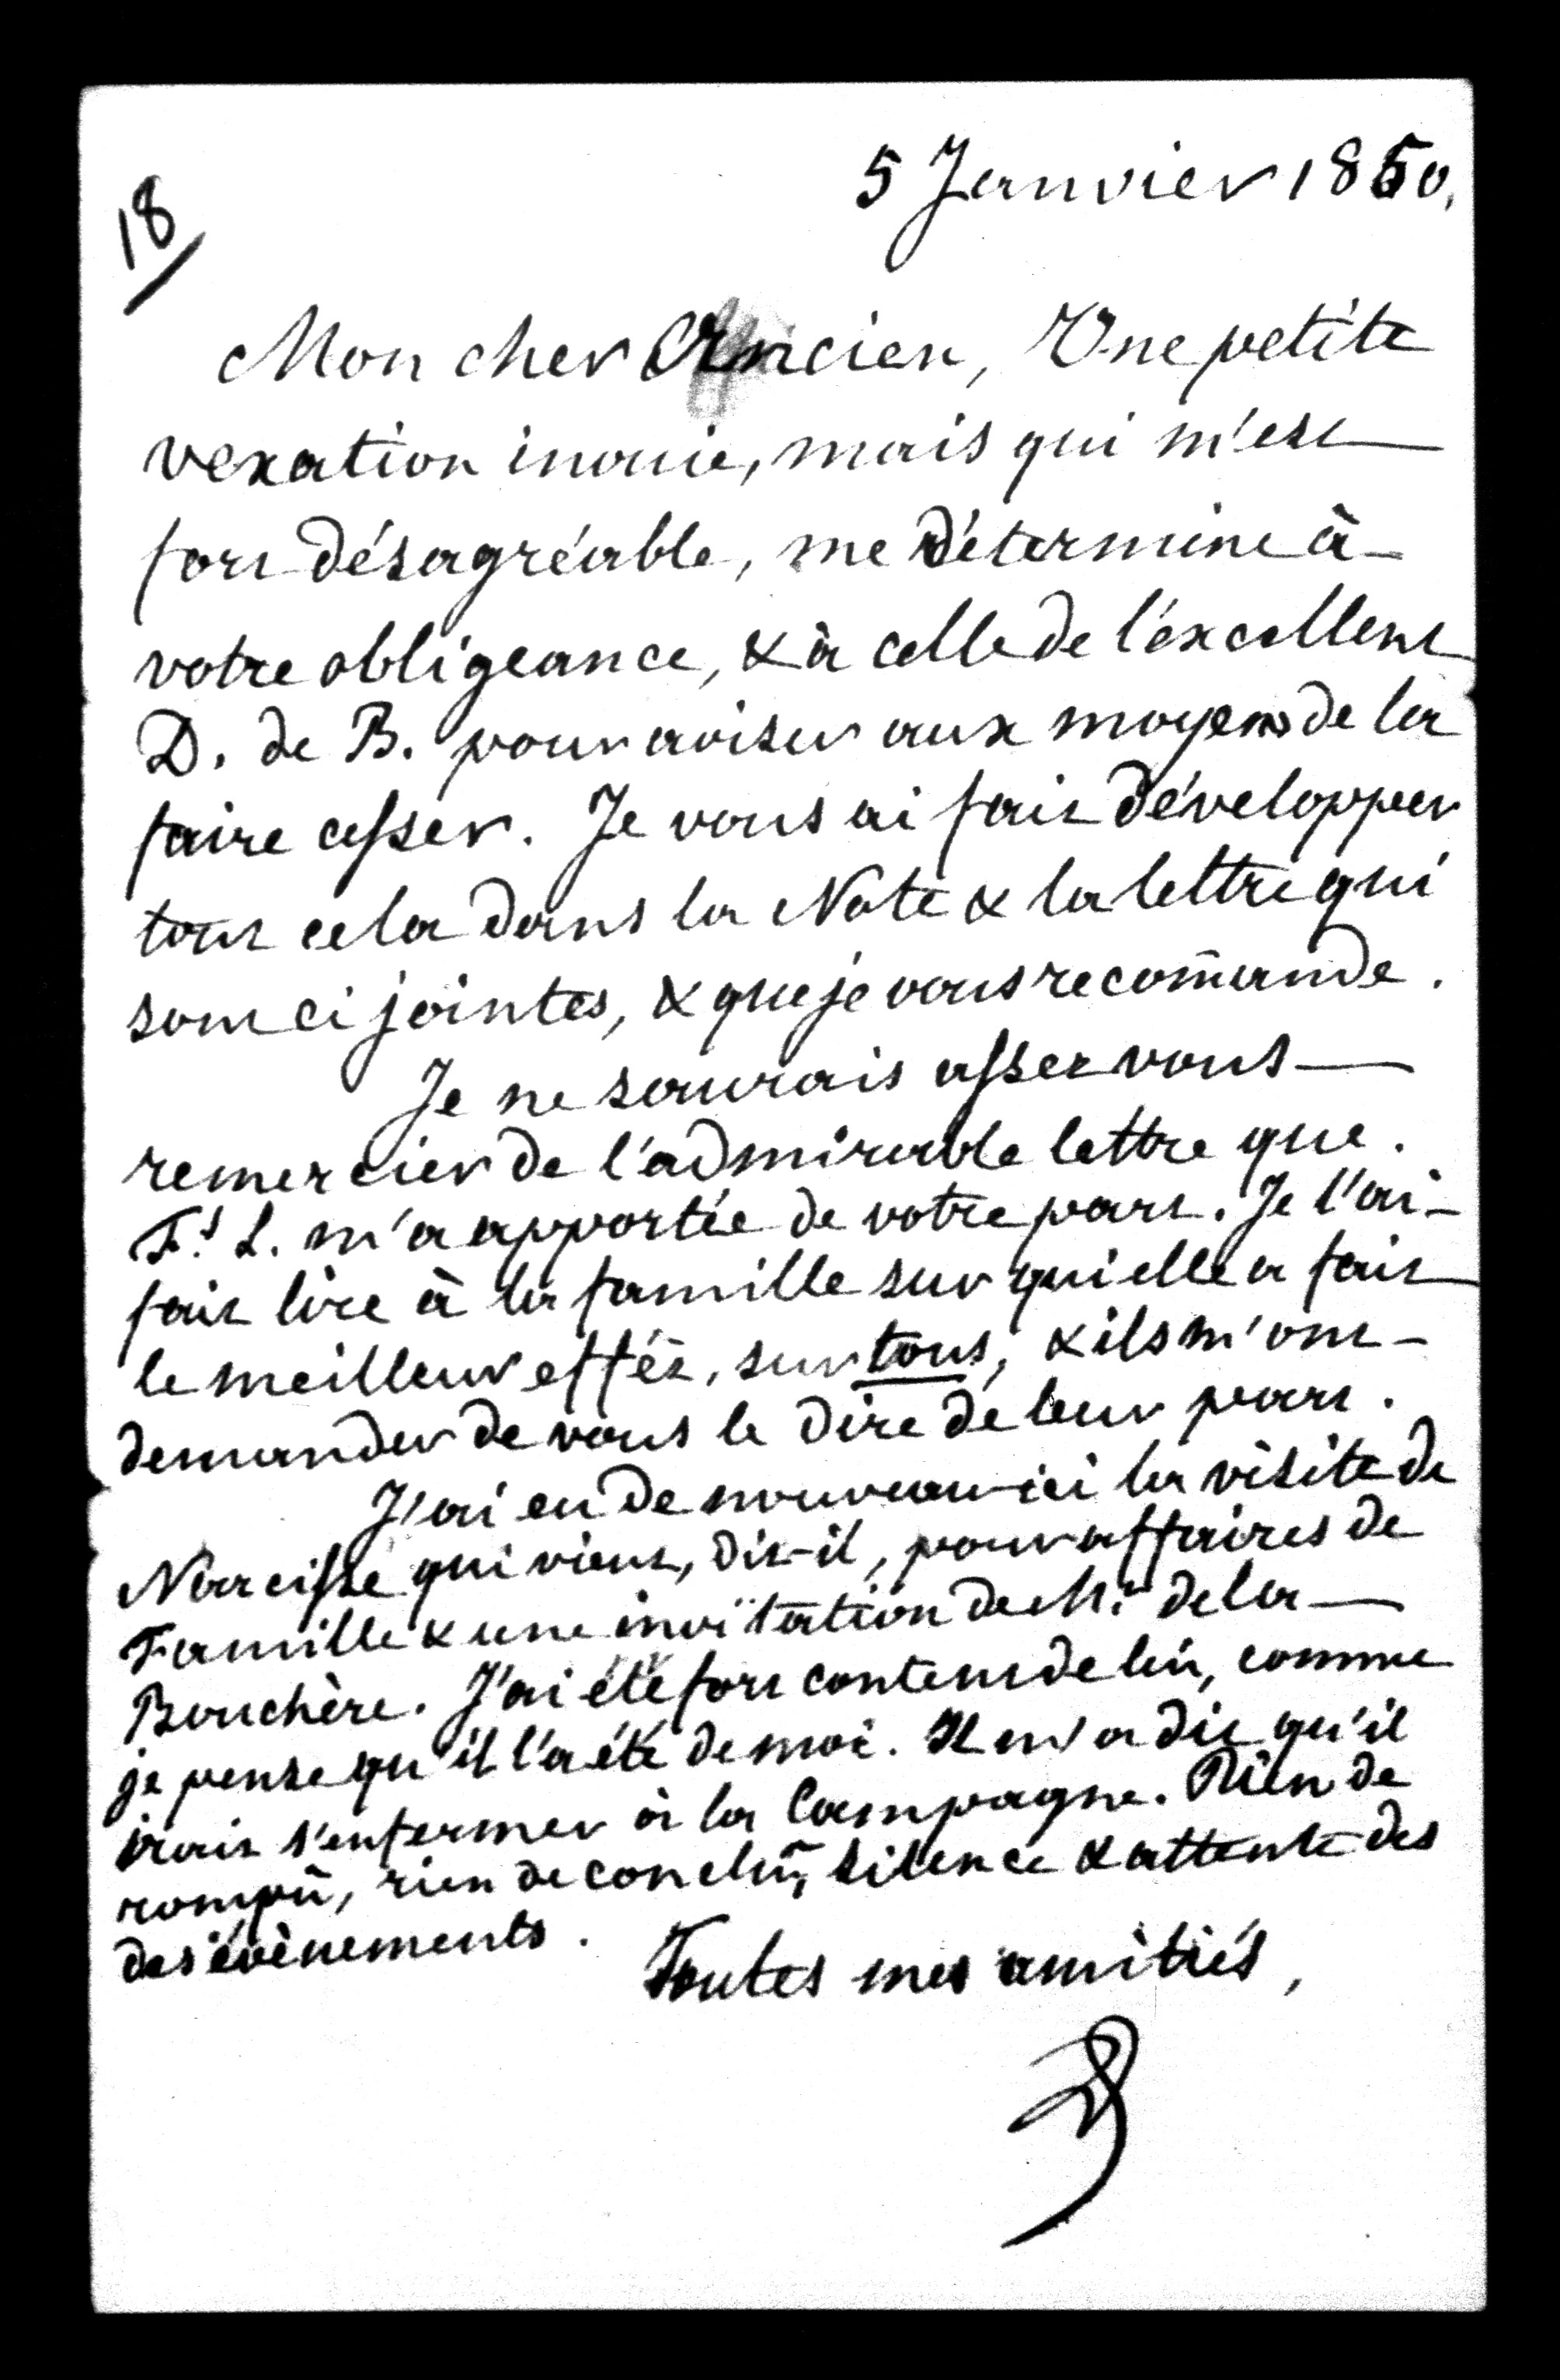 5 Janvier 1850.
18
Mon cher Ancien, Une petite
vexation inouie, mais qui m'est
fort désagréable, me détermine à
votre obligeance, & à celle de l'éxcellent
D. de B. pour aviser aux moyens de la
faire cesser. Je vous ai fait développer
tout cela dans la Note & la lettre qui
sont ci jointes, & que je vous recom̄ande.
Je ne saurais assez vous
remercier de l'admirable lettre que.
F.s L. m'a apportée de votre part. Je l'ai
fait lire à la famille sur qui elle a fait
le meilleur effét, sur tous, & ils m'ont
demander de vous le dire de leur part.
J'ai eu de nouveau ici la visite de
Narcisse qui vient, dit-il, pour affaires de
Famille & une invitation de M.r de la
Bouchère. J'ai été fort content de lui, comme
je pense qu'il l'a été de moi. Il m'a dit qu'il
irait s'enfermer à la Campagne. Rien de
rompû, rien de conclû, silence & attente des
des évènements.
Toutes mes amitiés,